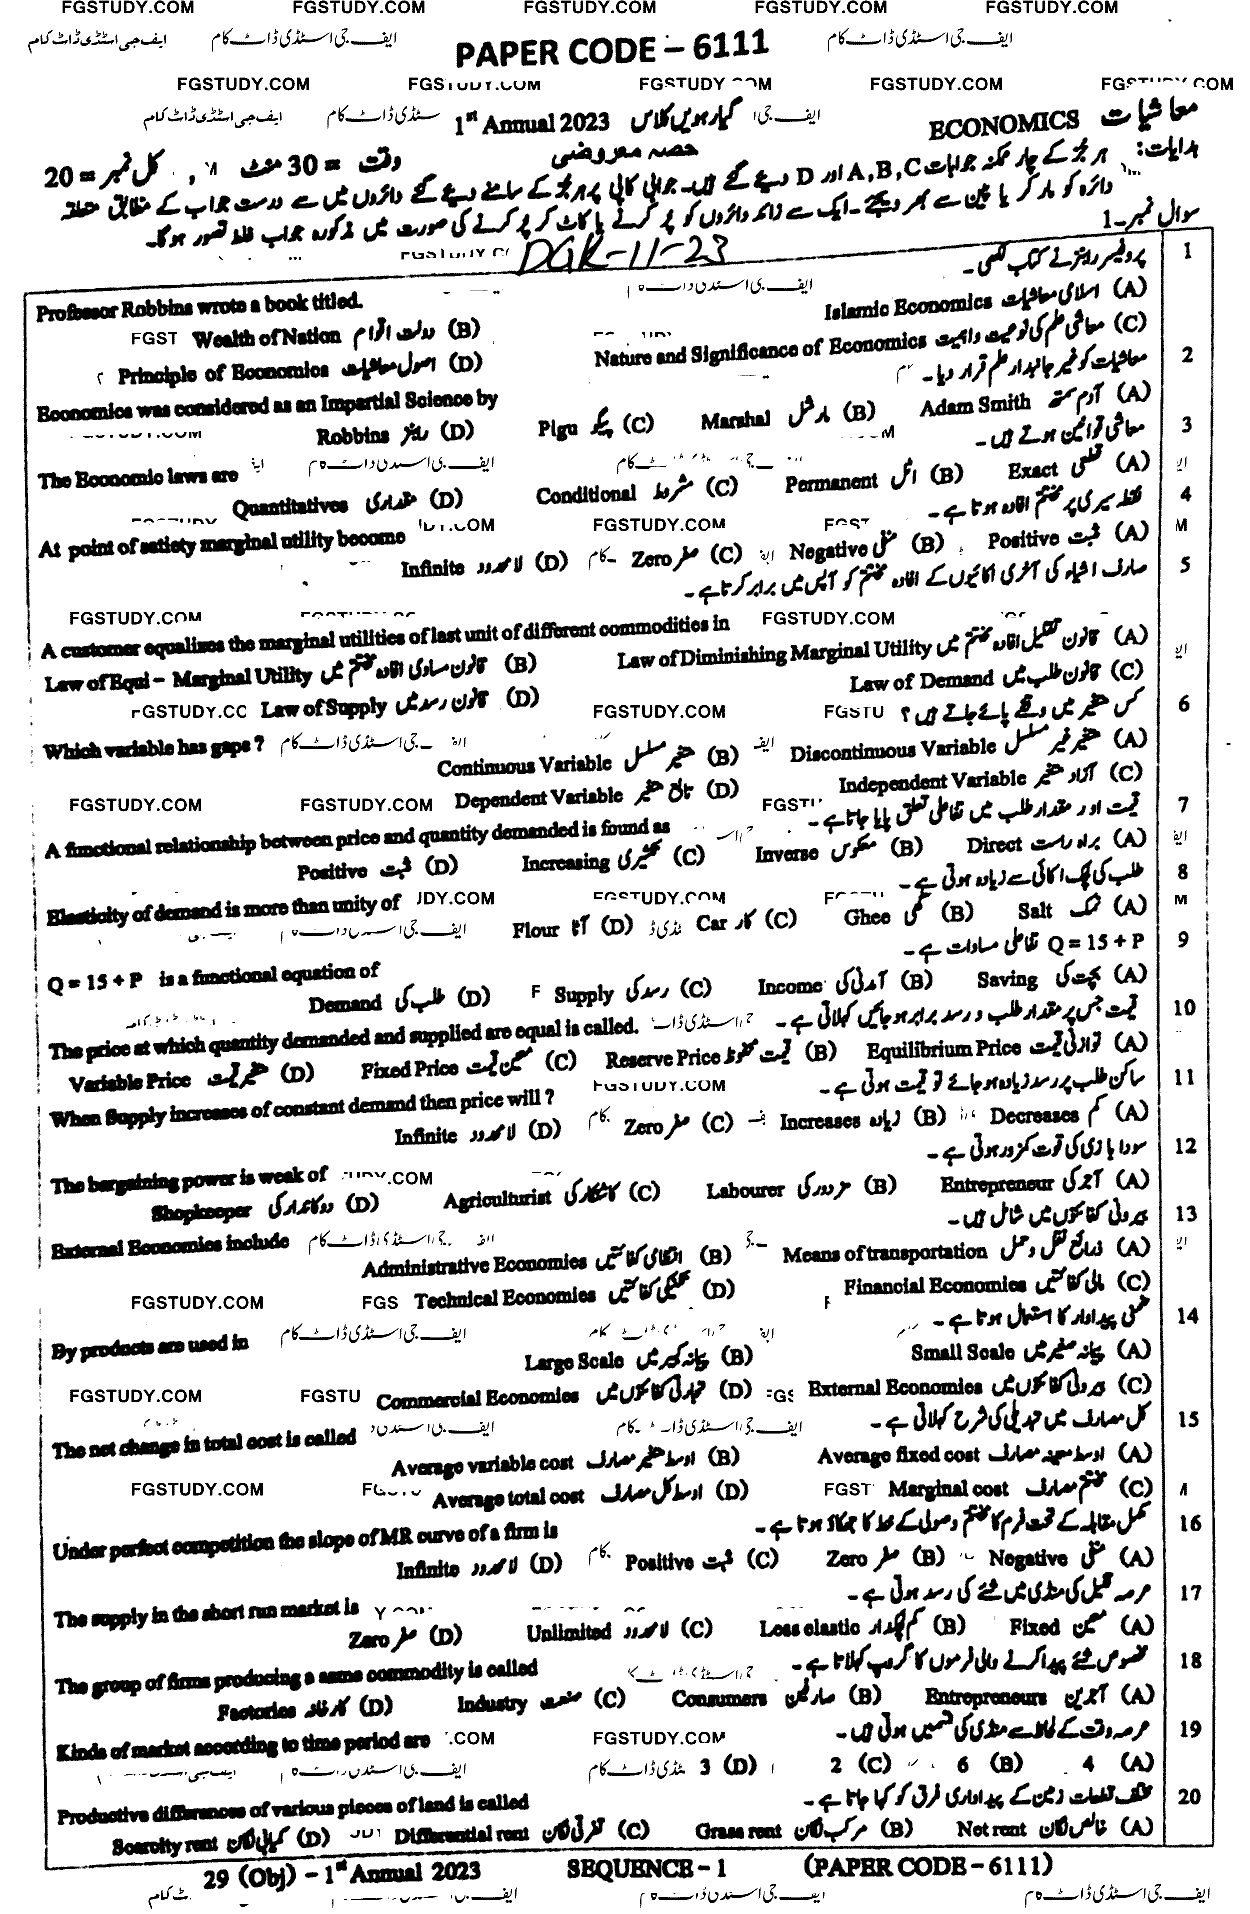 FGSTUDY.COM FGSTUDY.COM FGSTUDY.COM FGSTUDY.COM FGSTUDY.COM
ایف جی اسٹڈی ڈاٹ کام ایف جی اسٹڈی ڈاٹ کام ایف جی اسٹڈی ڈاٹ کام
PAPER CODE – 6111
FGSTUDY.COM FGSTUDY.COM FGSTUDY.COM FGSTUDY.COM
معاشیات ECONOMICS گیارہویں کلاس 1st Annual 2023
حصہ معروضی
وقت = 30 منٹ کل نمبر = 20
ہدایات: ہر جز کے چار ممکنہ جوابات A, B, C اور D دیے گئے ہیں۔ جوابی کاپی پر ہر جز کے سامنے دیے گئے دائروں میں سے درست جواب کے مطابق متعلقہ
دائرہ کو مارکر یا پین سے بھر دیجئے۔ ایک سے زائد دائروں کو پُر کرنے یا کاٹ کر پُر کرنے کی صورت میں مذکورہ جواب غلط تصور ہوگا۔
سوال نمبر۔1
DGK-11-23
1 پروفیسر رابنز نے کتاب لکھی۔
Professor Robbins wrote a book titled.
(A) اسلامی معاشیات Islamic Economics (B) دولت اقوام Wealth of Nation
(C) معاشی علم کی نوعیت واہمیت Nature and Significance of Economics (D) اصول معاشیات Principle of Economics
2 معاشیات کو غیر جانبدار علم قرار دیا۔
Economics was considered as an Impartial Science by
(A) آدم سمتھ Adam Smith (B) مارشل Marshal (C) پیگو Pigu (D) رابنز Robbins
3 معاشی قوانین ہوتے ہیں۔
The Economic laws are
(A) قطعی Exact (B) اٹل Permanent (C) مشروط Conditional (D) مقداری Quantitatives
4 نقطہ سیری پر مختتم افادہ ہوتا ہے۔
At point of satiety marginal utility become
(A) مثبت Positive (B) منفی Negative (C) صفر Zero (D) لامحدود Infinite
5 صارف اشیاء کی آخری اکائیوں کے افادہ مختتم کو آپس میں برابر کرتا ہے۔
A customer equalizes the marginal utilities of last unit of different commodities in
(A) قانون تقلیل افادہ مختتم میں Law of Diminishing Marginal Utility (B) قانون مساوی افادہ مختتم میں Law of Equi – Marginal Utility
(C) قانون طلب میں Law of Demand (D) قانون رسد میں Law of Supply
6 کس متغیر میں وقفے پائے جاتے ہیں؟
Which variable has gaps?
(A) متغیر غیر مسلسل Discontinuous Variable (B) متغیر مسلسل Continuous Variable
(C) آزاد متغیر Independent Variable (D) تابع متغیر Dependent Variable
7 قیمت اور مقدار طلب میں تفاعلی تعلق پایا جاتا ہے۔
A functional relationship between price and quantity demanded is found as
(A) براہ راست Direct (B) معکوس Inverse (C) تکثیری Increasing (D) مثبت Positive
8 طلب کی لچک اکائی سے زیادہ ہوتی ہے۔
Elasticity of demand is more than unity of
(A) نمک Salt (B) گھی Ghee (C) کار Car (D) آٹا Flour
9 Q = 15 + P تفاعلی مساوات ہے۔
Q = 15 + P is a functional equation of
(A) بچت کی Saving (B) آمدنی کی Income (C) رسد کی Supply (D) طلب کی Demand
10 قیمت جس پر مقدار طلب و رسد برابر ہو جائیں کہلاتی ہے۔
The price at which quantity demanded and supplied are equal is called.
(A) توازنی قیمت Equilibrium Price (B) قیمت محفوظ Reserve Price (C) معین قیمت Fixed Price (D) متغیر قیمت Variable Price
11 ساکن طلب پر رسد زیادہ ہو جائے تو قیمت ہوتی ہے۔
When Supply increases of constant demand then price will?
(A) کم Decreases (B) زیادہ Increases (C) صفر Zero (D) لامحدود Infinite
12 سودا بازی کی قوت کمزور ہوتی ہے۔
The bargaining power is weak of
(A) آجر کی Entrepreneur (B) مزدور کی Labourer (C) کاشتکار کی Agriculturist (D) دوکاندار کی Shopkeeper
13 بیرونی کفائتوں میں شامل ہیں۔
External Economies include
(A) ذرائع نقل و حمل Means of transportation (B) انتظامی کفائتیں Administrative Economies
(C) مالی کفائتیں Financial Economies (D) تکنیکی کفائتیں Technical Economies
14 ضمنی پیداوار کا استعمال ہوتا ہے۔
By products are used in
(A) پیمانہ صغیر میں Small Scale (B) پیمانہ کبیر میں Large Scale
(C) بیرونی کفائتوں میں External Economies (D) تجارتی کفائتوں میں Commercial Economies
15 کل مصارف میں تبدیلی کی شرح کہلاتی ہے۔
The net change in total cost is called
(A) اوسط معینہ مصارف Average fixed cost (B) اوسط متغیر مصارف Average variable cost
(C) مختتم مصارف Marginal cost (D) اوسط کل مصارف Average total cost
16 مکمل مقابلہ کے تحت فرم کا مختتم وصولی کے خط کا جھکاؤ ہوتا ہے۔
Under perfect competition the slope of MR curve of a firm is
(A) منفی Negative (B) صفر Zero (C) مثبت Positive (D) لامحدود Infinite
17 عرصہ قلیل کی منڈی میں شئے کی رسد ہوتی ہے۔
The supply in the short run market is
(A) معین Fixed (B) کم لچکدار Less elastic (C) لامحدود Unlimited (D) صفر Zero
18 مخصوص شئے پیدا کرنے والی فرموں کا گروپ کہلاتا ہے۔
The group of firms producing a same commodity is called
(A) آجرین Entrepreneurs (B) صارفین Consumers (C) صنعت Industry (D) کارخانہ Factories
19 عرصہ وقت کے لحاظ سے منڈی کی قسمیں ہوتی ہیں۔
Kinds of market according to time period are
(A) 4 (B) 6 (C) 2 (D) 3
20 مختلف قطعات زمین کے پیداواری فرق کو کہا جاتا ہے۔
Productive differences of various pieces of land is called
(A) خالص لگان Net rent (B) مرکب لگان Grass rent (C) تفرقی لگان Differential rent (D) کمیابی لگان Scarcity rent
29 (Obj) – 1st Annual 2023 SEQUENCE – 1 (PAPER CODE – 6111)